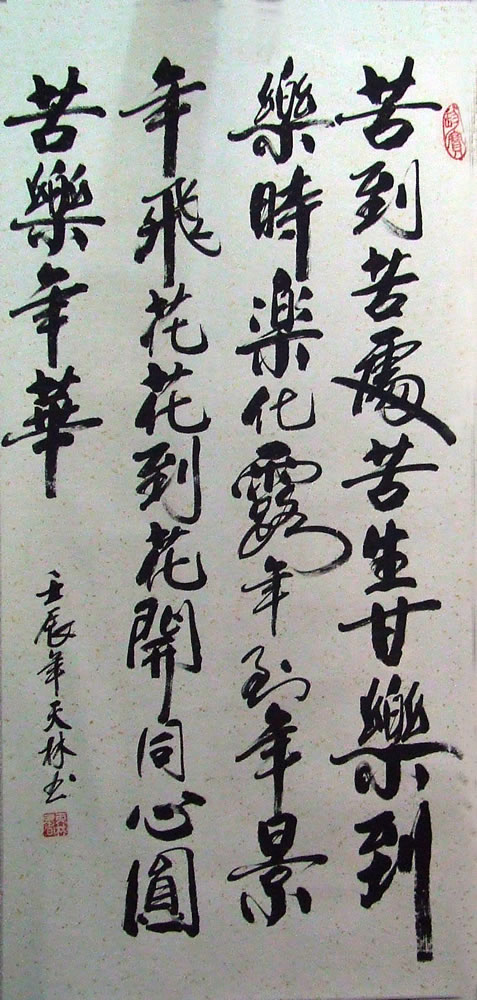 苦到苦處苦生甘樂到
樂時楽化露年到年景
年飛花花到花開同心圓
苦樂年華
壬辰年天林书